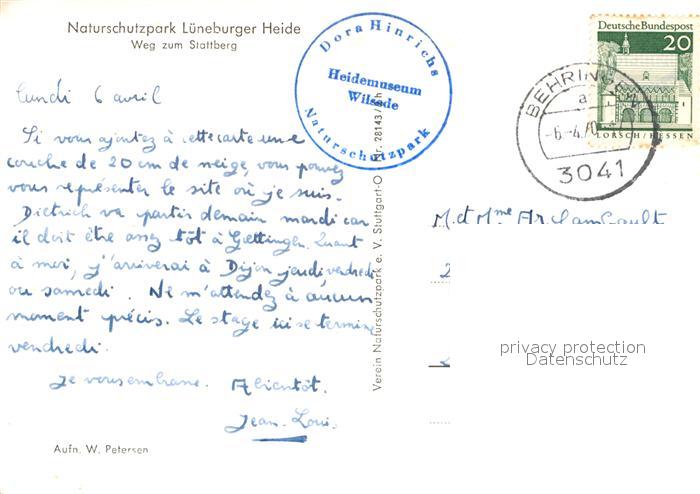 Naturschutzpark Lüneburger Heide
Weg zum Stattberg
Dora Hinrichs
Heidemuseum
Wilsede
Naturschutzpark
Deutsche Bundespost
20
LORSCH/HESSEN
BEHRINGEN
a
-6.-4.70
3041
lundi 6 avril
Si vous ajoutez à cette carte une
couche de 20 cm de neige, vous pouvez
vous représenter le site où je suis.
Dietrich va partir demain mardi car
il doit être assez tôt à Gœttingen. Quant
à moi, j'arriverai à Dijon jeudi vendredi
ou samedi. Ne m'attendez à aucun
moment précis. Le stage ici se termine
vendredi.
Je vous embrasse. A bientôt.
Jean-Louis.
Aufn. W. Petersen
Verein Naturschutzpark e. V. Stuttgart-O
Nr. 78143/
M. et Mme Archambault
2
privacy protection
Datenschutz